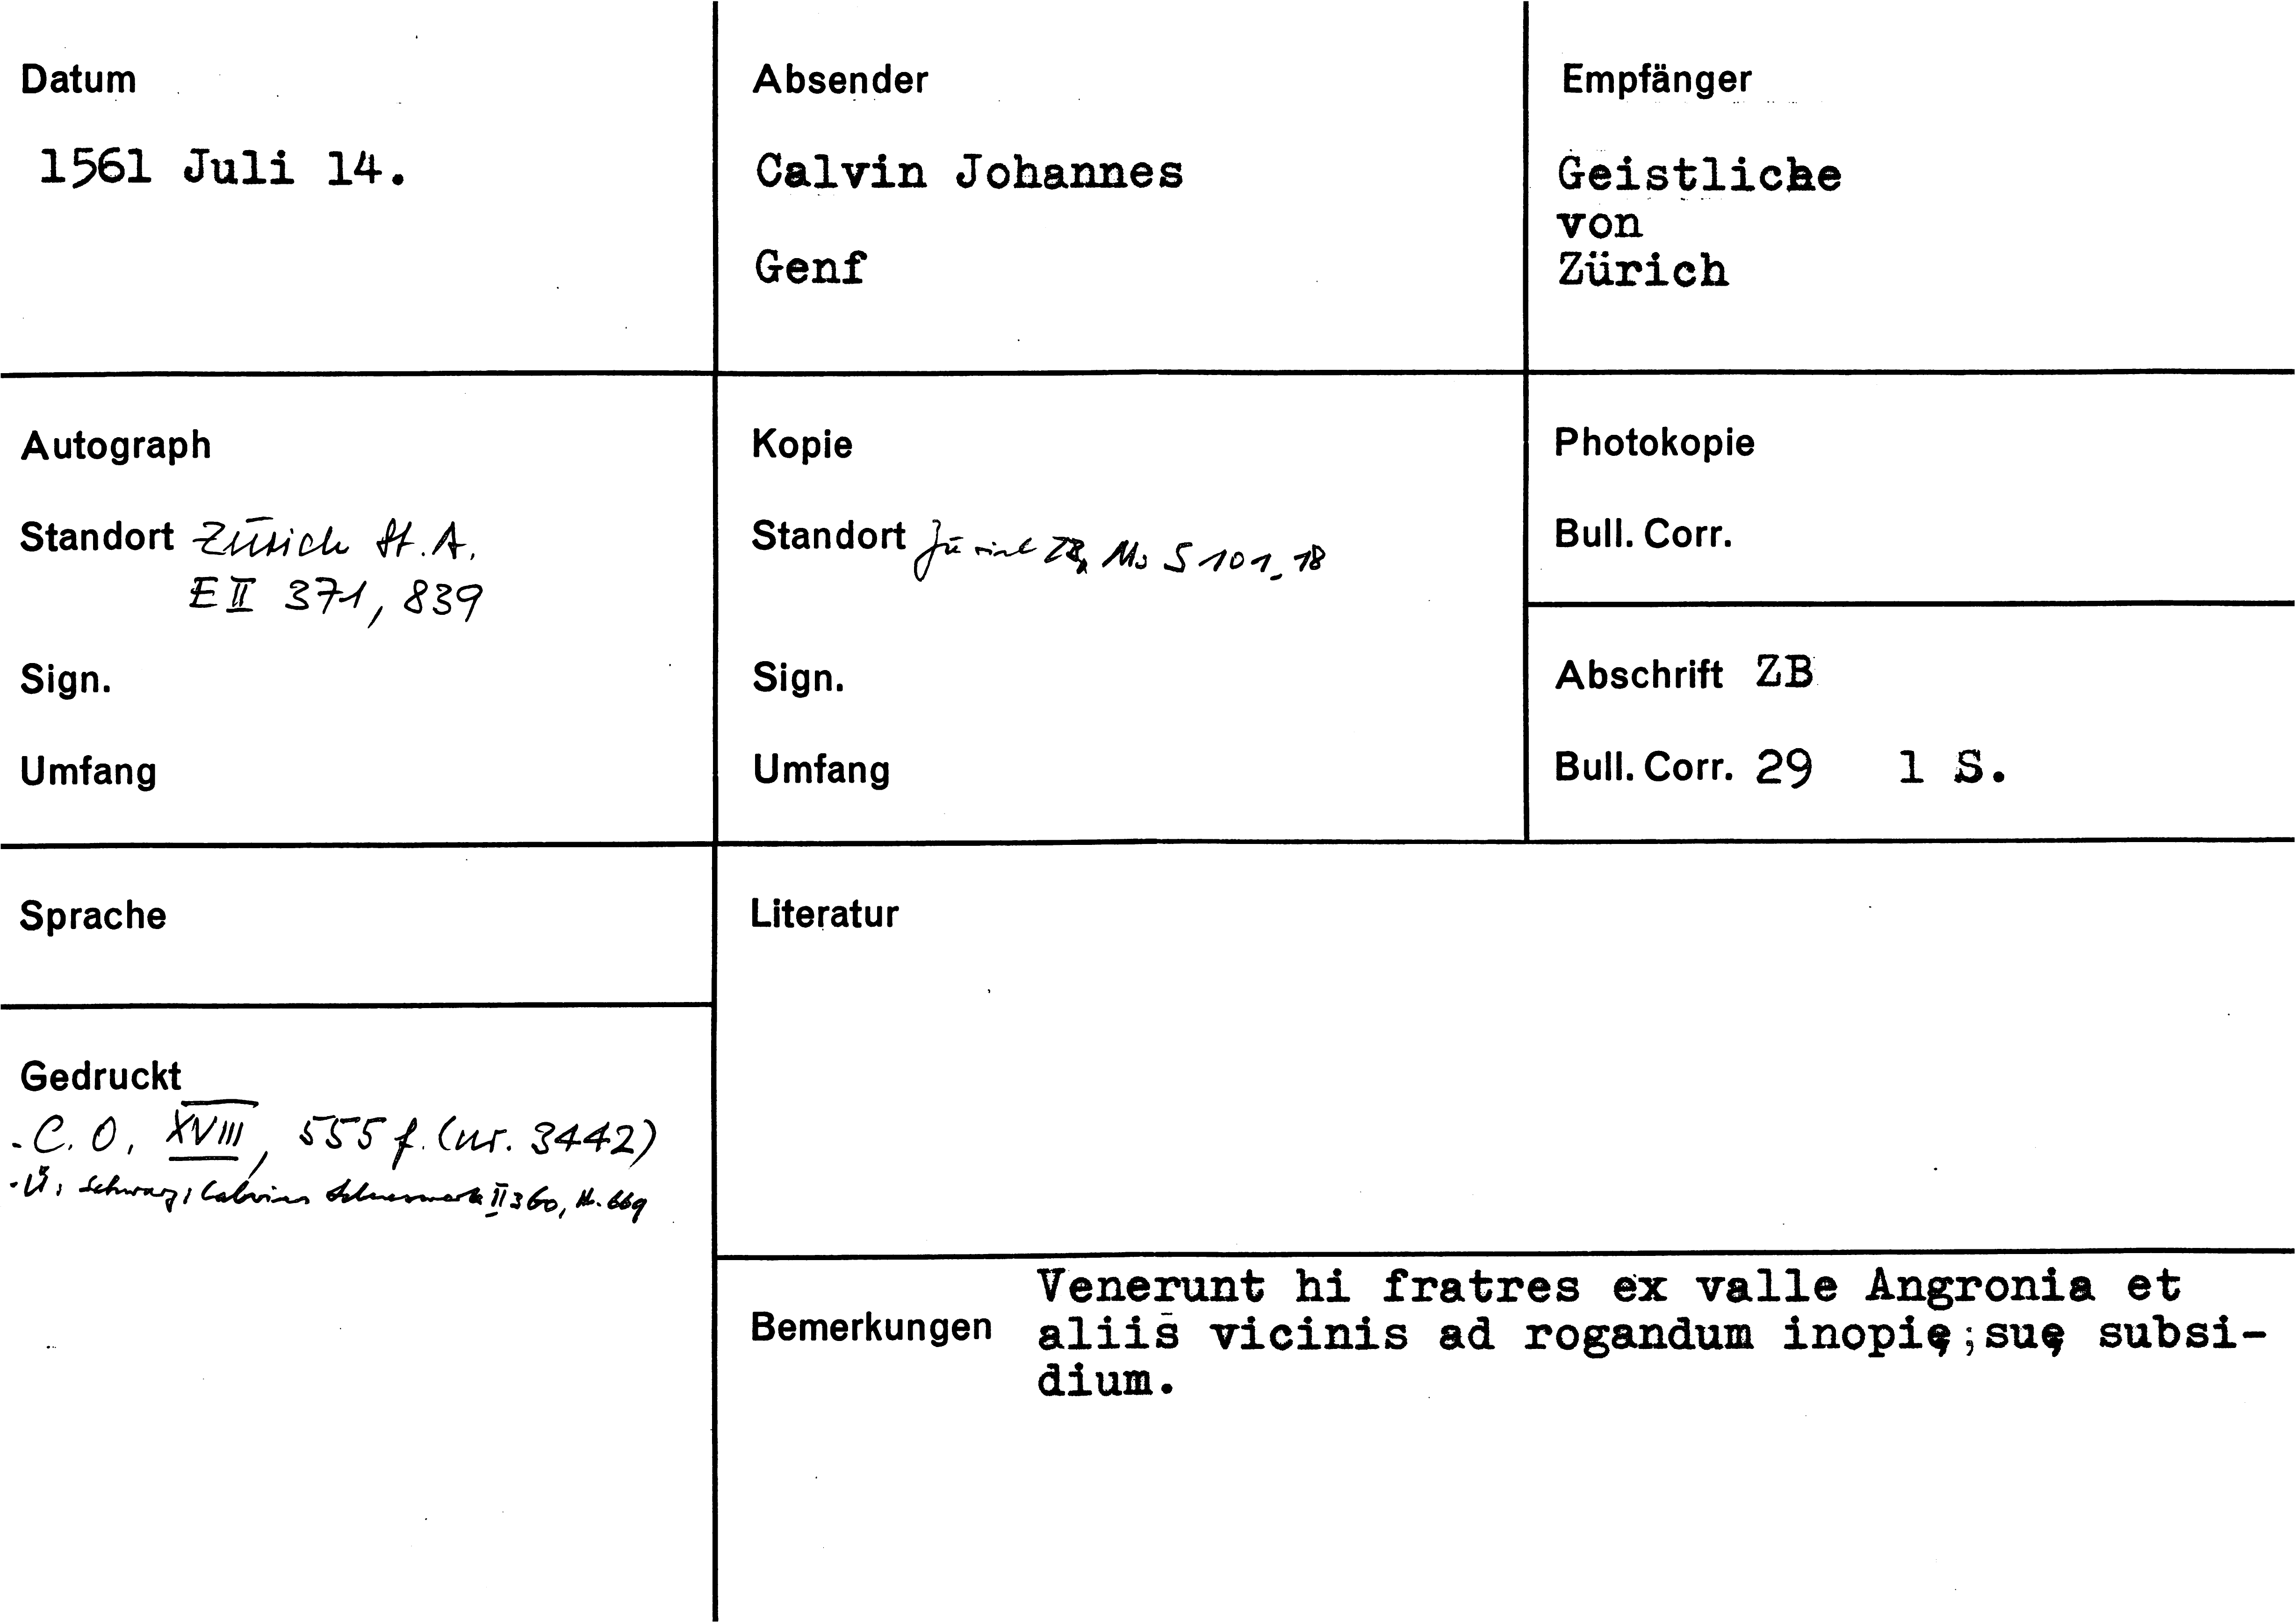 Datum
1561 Juli 14.
Absender
Calvin Johannes
Genf
Empfänger
Geistliche
von
Zürich
Autograph
Standort Zürich St. A.
E II 371, 839
Sign.
Umfang
Kopie
Standort Zürich ZB, Ms S 101, 18
Sign.
Umfang
Photokopie
Bull. Corr.
Abschrift ZB
Bull. Corr. 29 1 S.
Sprache
Gedruckt
- C. O. XVIII, 555 f. (nr. 3442)
- Ü: Schwarz, Calvins Lebenswerk II 360, Nr. 669
Literatur
Bemerkungen
Venerunt hi fratres ex valle Angronia et
aliis vicinis ad rogandum inopię; suę subsi-
dium.